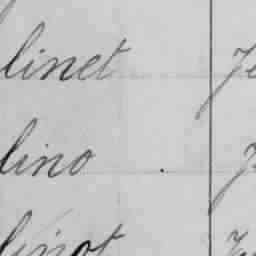 linet
lino
linot